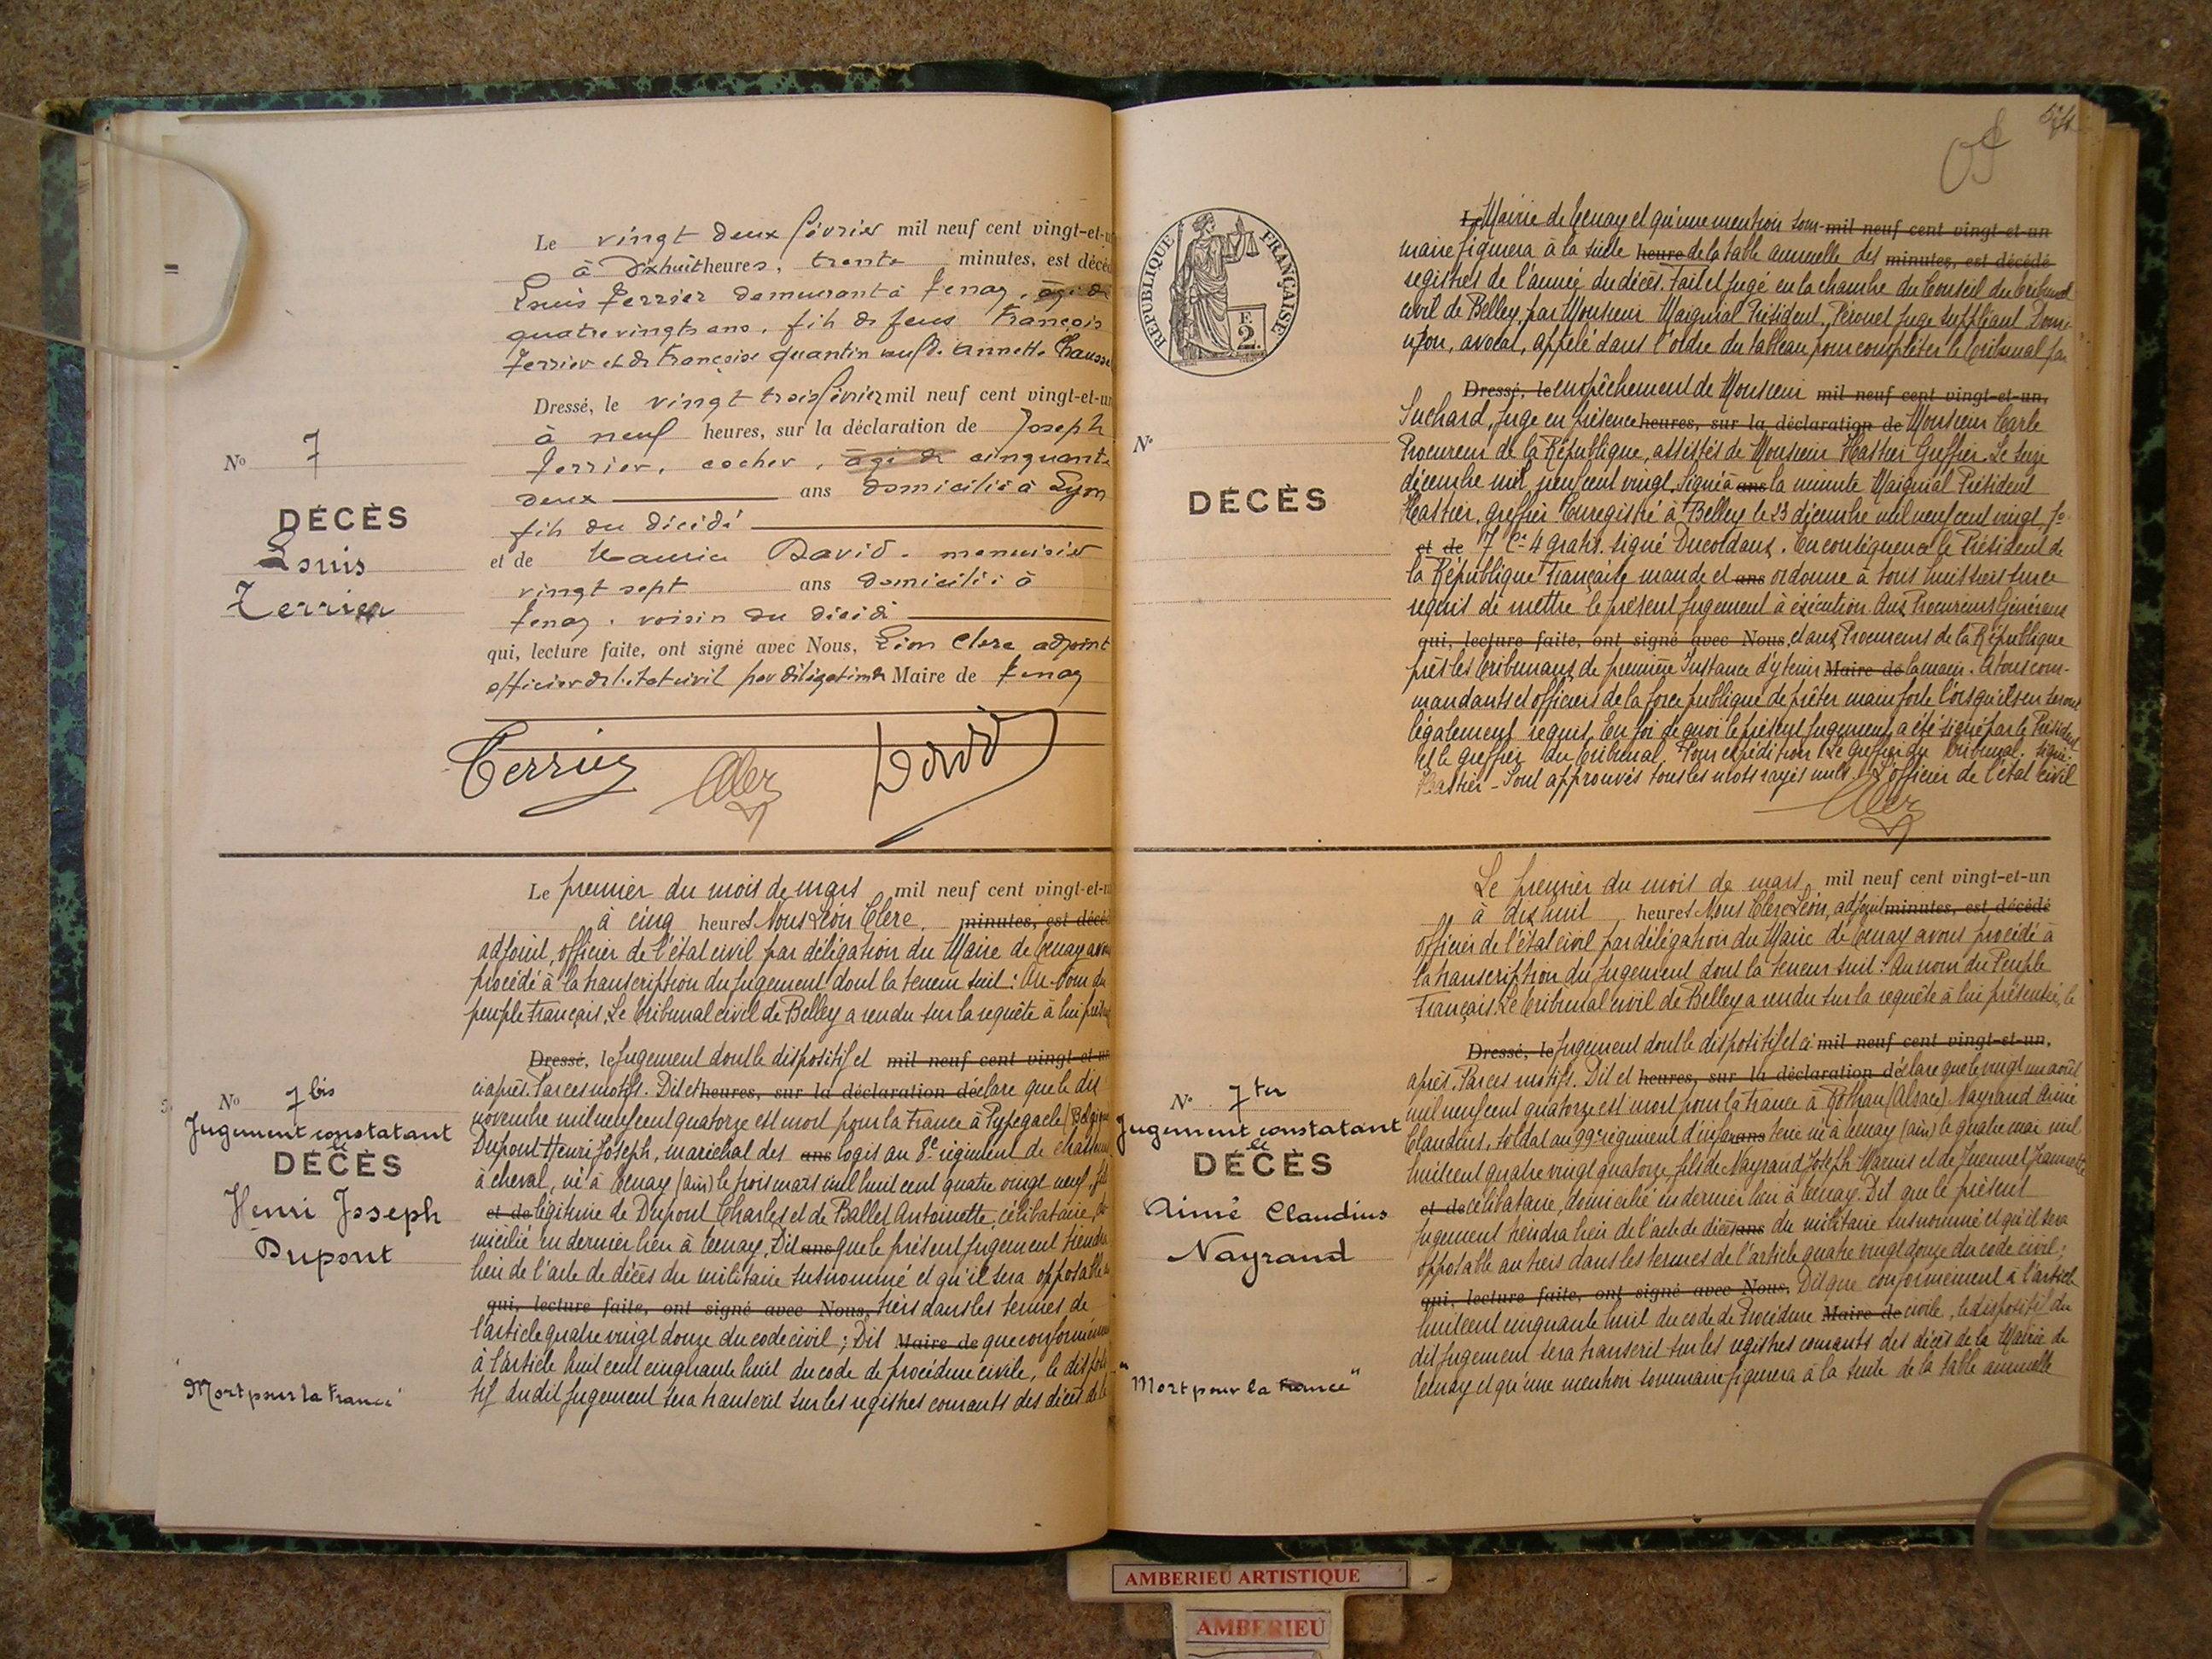 Le vingt deux février mil neuf cent vingt-et-u
à dixhuit heures, trente minutes, est décé
Louis Terrier demeurant à Tenay, âgé de
quatre vingts ans, fils de feus François
Terrier et de Françoise quantin veuf de Annette Chausse
Dressé, le vingt trois février mil neuf cent vingt-et-un
à neuf heures, sur la déclaration de Joseph
Terrier, cocher, âgé de cinquante
deux ans domicilié à Lyon
fils du décédé
et de Maurice David, menuisier
vingt sept ans domicilié à
Tenay, voisin du décédé
qui, lecture faite, ont signé avec Nous, Léon Clerc adjoint
officier de l'état civil par délégation du Maire de Tenay
Terrier Clerc David
No 7
DÉCÈS
Louis
Terrier
Le premier du mois de mars mil neuf cent vingt-et-u
à cinq heures Nous Léon Clerc, minutes, est décé
adjoint, officier de l'état civil par délégation du Maire de Tenay avons
procédé à la transcription du jugement dont la teneur suit : Au nom du
peuple Français, Le tribunal civil de Belley a rendu sur la requête à lui
Dressé, le jugement dont le dispositif est mil neuf cent vingt-et-un
ci après. Par ces motifs. Dit et heures, sur la déclaration de déclare que le dix
novembre mil neuf cent quatorze est mort pour la France à Pypegaele (Belgique
Dupont Henri Joseph, maréchal des ans logis au 8e régiment de chasseurs
à cheval, né à Tenay (ain) le trois mars mil huit cent quatre vingt neuf, fils
et de légitime de Dupont Charles et de Ballet Antoinette, célibataire, do
micilié en dernier lieu à Tenay, Dit ans que le présent jugement tiendra
lieu de l'acte de décès du militaire susnommé et qu'il sera opposable
qui, lecture faite, ont signé avec Nous, tiers dans les termes de
l'article quatre vingt douze du code civil ; Dit Maire de que conformément
à l'article huit cent cinquante huit du code de procédure civile, le disposi
tif dudit jugement sera transcrit sur les registres courants des décès de la
No 7 bis
Jugement constatant
le
DÉCÈS
Henri Joseph
Dupont
Mort pour la France
RÉPUBLIQUE FRANÇAISE
E
2
Le Mairie de Tenay et qu'une mention som- mil neuf cent vingt-et-un
maire figurera à la suite heure de la table annuelle des minutes, est décédé
registres de l'année du décès. Fait et jugé en la chambre du Conseil du tribunal
civil de Belley, par Monsieur Maignial Président, Pérouel juge suppléant
avocat, appelé dans l'ordre du tableau pour compléter le tribunal par
Dressé, le empêchement de Monsieur mil neuf cent vingt-et-un,
Suchard, Juge en présence heures, sur la déclaration de Monsieur Carle
Procureur de la République, assistés de Monsieur Hastier Greffier. Le seize
décembre mil neuf cent vingt. Signé à ans la minute Maignial Président
Hastier, greffier Enregistré à Belley le 23 décembre mil neuf cent vingt, fo
et de 7 Ce 4 gratis. signé Ducoldaux. En conséquence le Président de
la République Française mande et ans ordonne à tous huissiers sur ce
requis de mettre le présent jugement à exécution Aux Procureurs Généraux
qui, lecture faite, ont signé avec Nous, et aux Procureurs de la République
près les tribunaux de première Instance d'y tenir Maire de la main. A tous com-
mandants et officiers de la force publique de prêter main forte lorsqu'ils en seront
légalement requis. En foi de quoi le présent jugement a été signé par le Président
et le greffier du tribunal. Pour expédition Le Greffier du tribunal. signé:
Hastier - Sont approuvés tous les mots rayés nuls L'officier de l'état civil
Clerc
No
DÉCÈS
Le premier du mois de mars, mil neuf cent vingt-et-un
à dix huit heures Nous Clerc Léon, adjoint minutes, est décédé
officier de l'état civil par délégation du Maire de Tenay avons procédé à
la transcription du jugement dont la teneur suit : Au nom du Peuple
Français. Le tribunal civil de Belley a rendu sur la requête à lui présentée, le
Dressé, le jugement dont le dispositif est ci mil neuf cent vingt-et-un,
après. Par ces motifs. Dit et heures, sur la déclaration déclare que le vingt une août
mil neuf cent quatorze est mort pour la France à Rothau (Alsace) Nayrand Aimé
Claudius, soldat au 99e régiment d'infan ans terie né à Tenay (ain) le quatre mai mil
huit cent quatre vingt quatorze, fils de Nayrand Joseph Marius et de Jeannette
et de célibataire, domicilié en dernier lieu à Tenay. Dit que le présent
jugement tiendra lieu de l'acte de décès ans du militaire susnommé et qu'il sera
opposable au tiers dans les termes de l'article quatre vingt douze du code civil ;
qui, lecture faite, ont signé avec Nous, Dit que conformément à l'article
huit cent cinquante huit du code de Procédure Maire de civile, le dispositif du
dit jugement sera transcrit sur les registres courants des décès de la Mairie de
Tenay et qu'une mention sommaire figurera à la suite de la table annuelle
No 7 ter
Jugement constatant
le
DÉCÈS
Aimé Claudius
Nayrand
"Mort pour la France"
AMBERIEU ARTISTIQUE
AMBERIEU